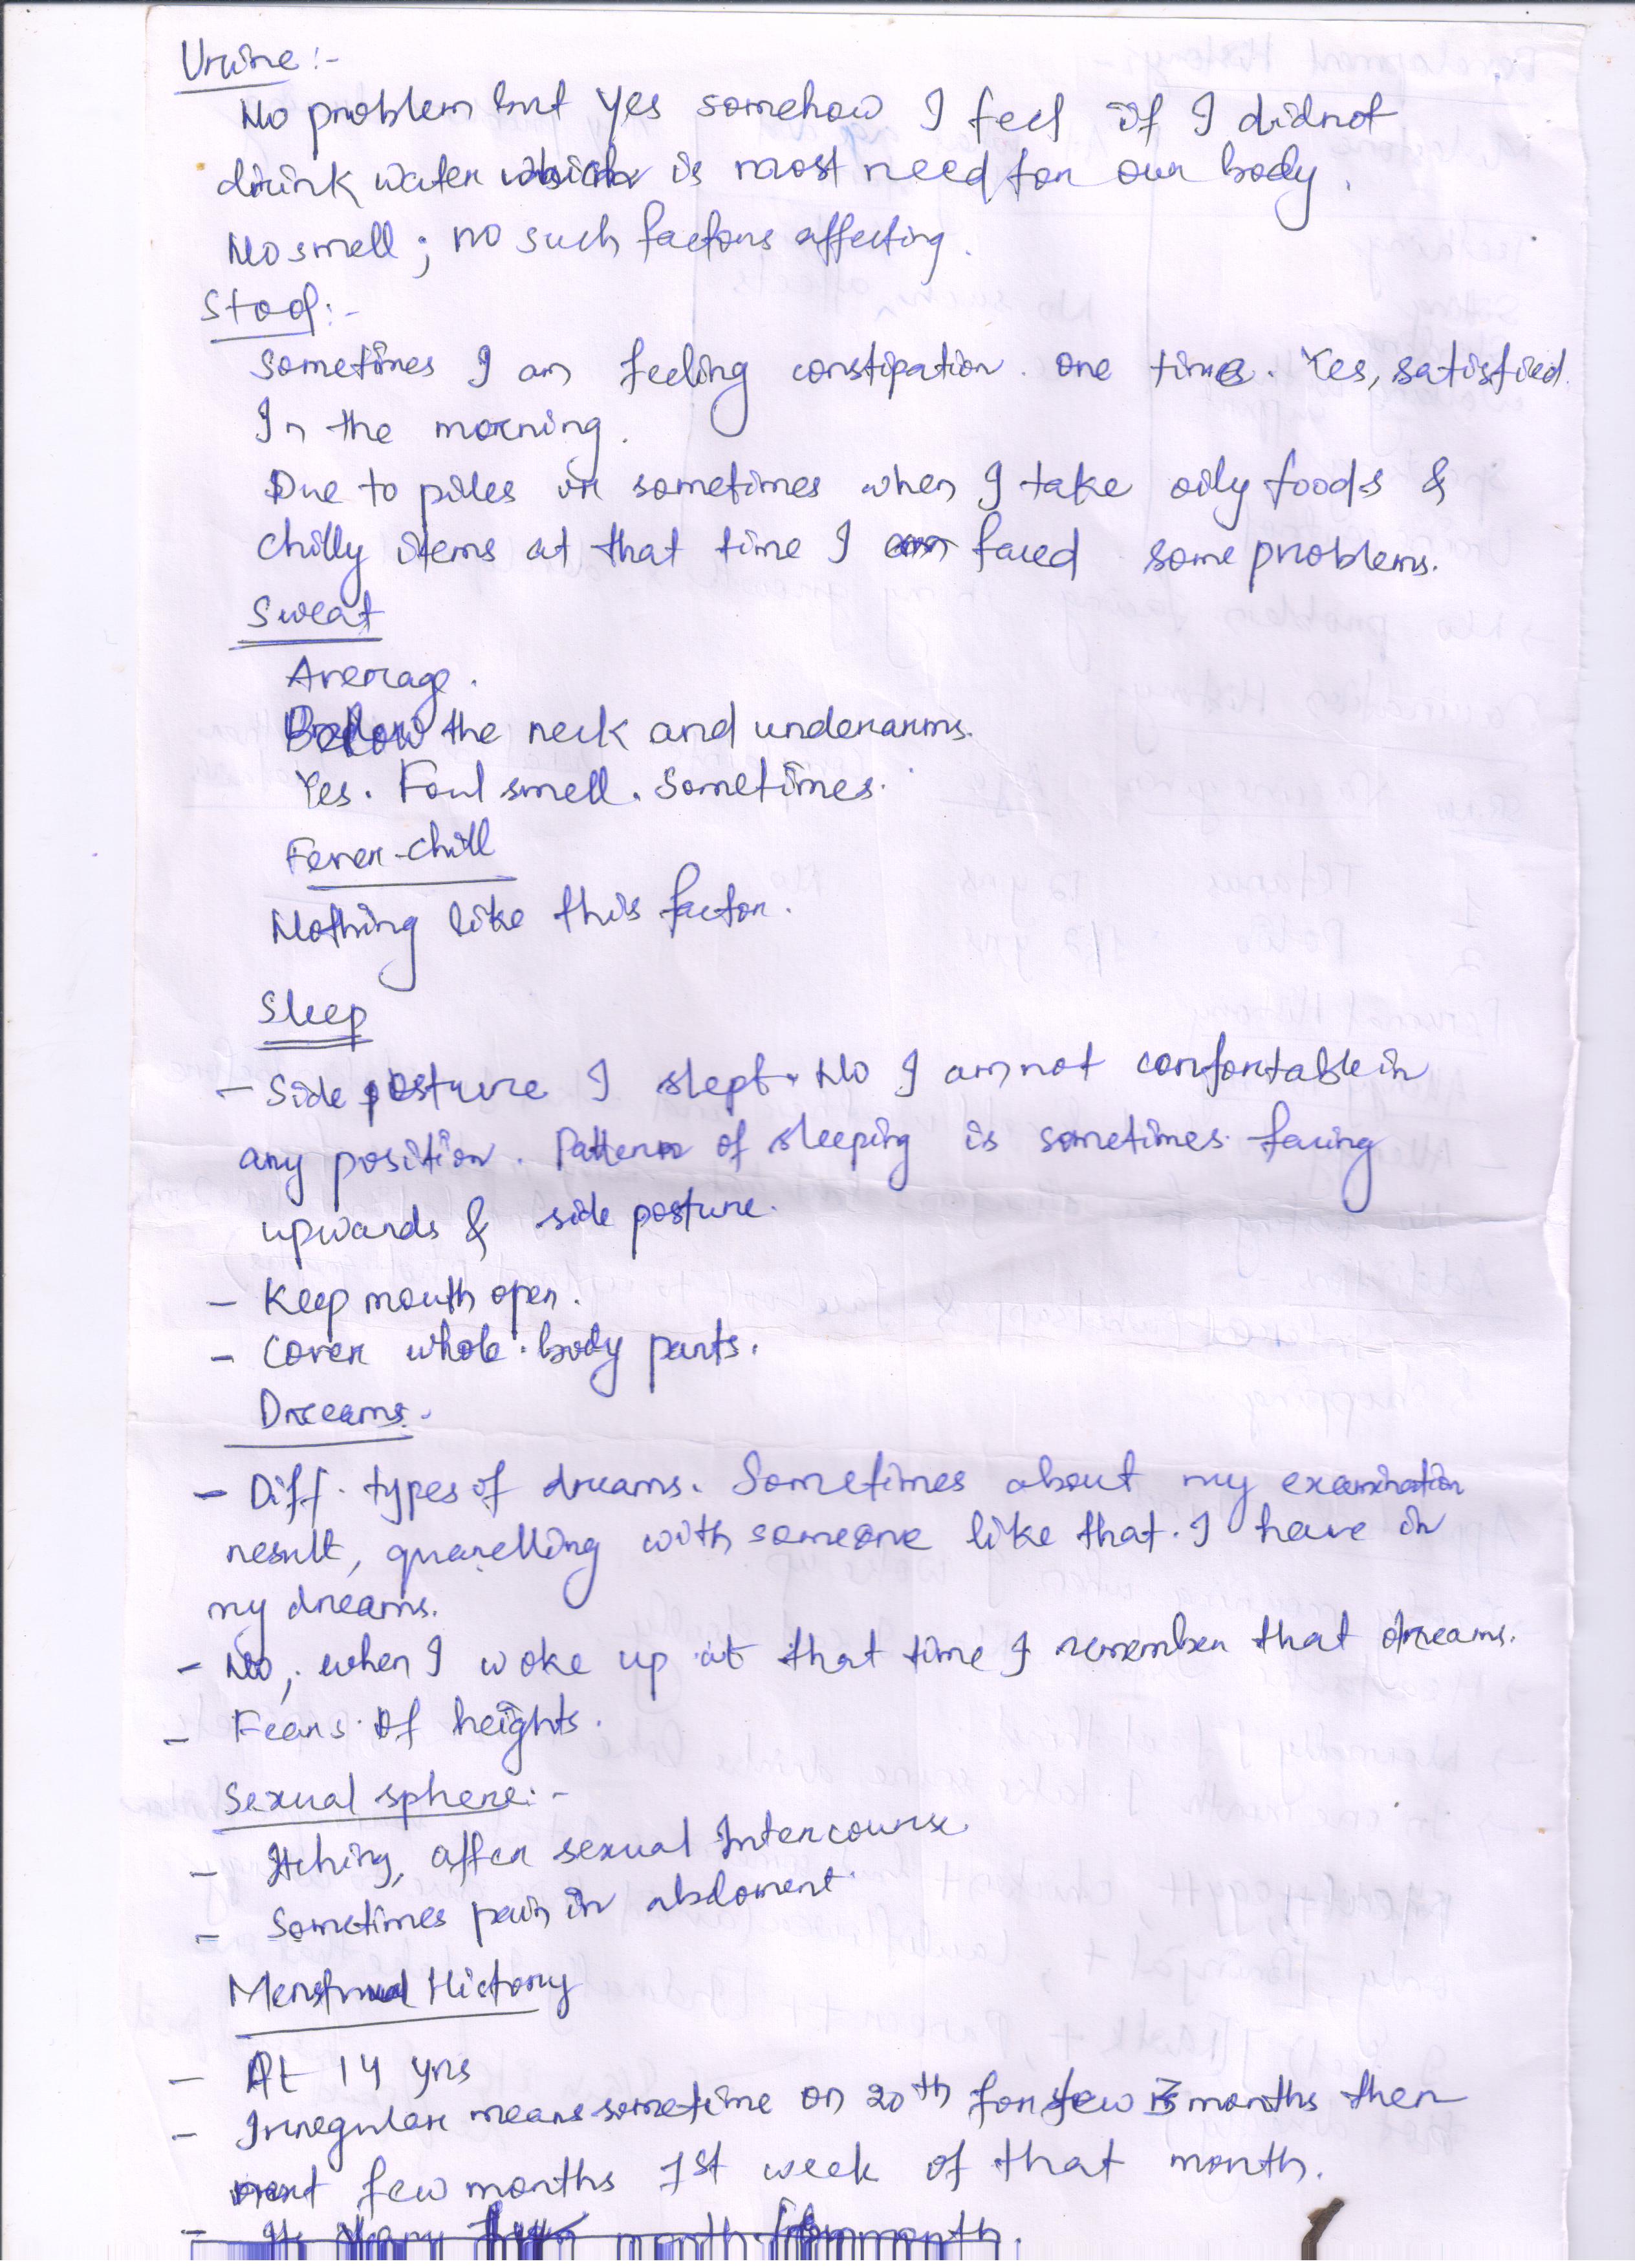 Urine :-
No problem but yes somehow I feel if I didnot
drink water which is most need for our body.
No smell ; no such factors affecting.
Stool :-
Sometimes I am feeling constipation. one time. Yes, satisfied.
In the morning.
Due to piles in sometimes when I take oily foods &
chilly items at that time I faced some problems.
Sweat
Average.
Below the neck and underarms.
Yes. Foul smell. Sometimes.
Fever-chill
Nothing like this factor.
Sleep
- Side posture I slept. No I am not comfortable in
any position. Pattern of sleeping is sometimes facing
upwards & side posture.
- Keep mouth open.
- Cover whole body parts.
Dreams.
- Diff. types of dreams. Sometimes about my examination
result, quarelling with someone like that. I have in
my dreams.
- No, when I woke up at that time I remember that dreams.
- Fears of heights.
Sexual sphere :-
- Itching, after sexual Intercourse
- Sometimes pain in abdoment
Menstrual History
- At 14 yrs
- Irregular means sometime on 20th for few months then
next few months 1st week of that month.